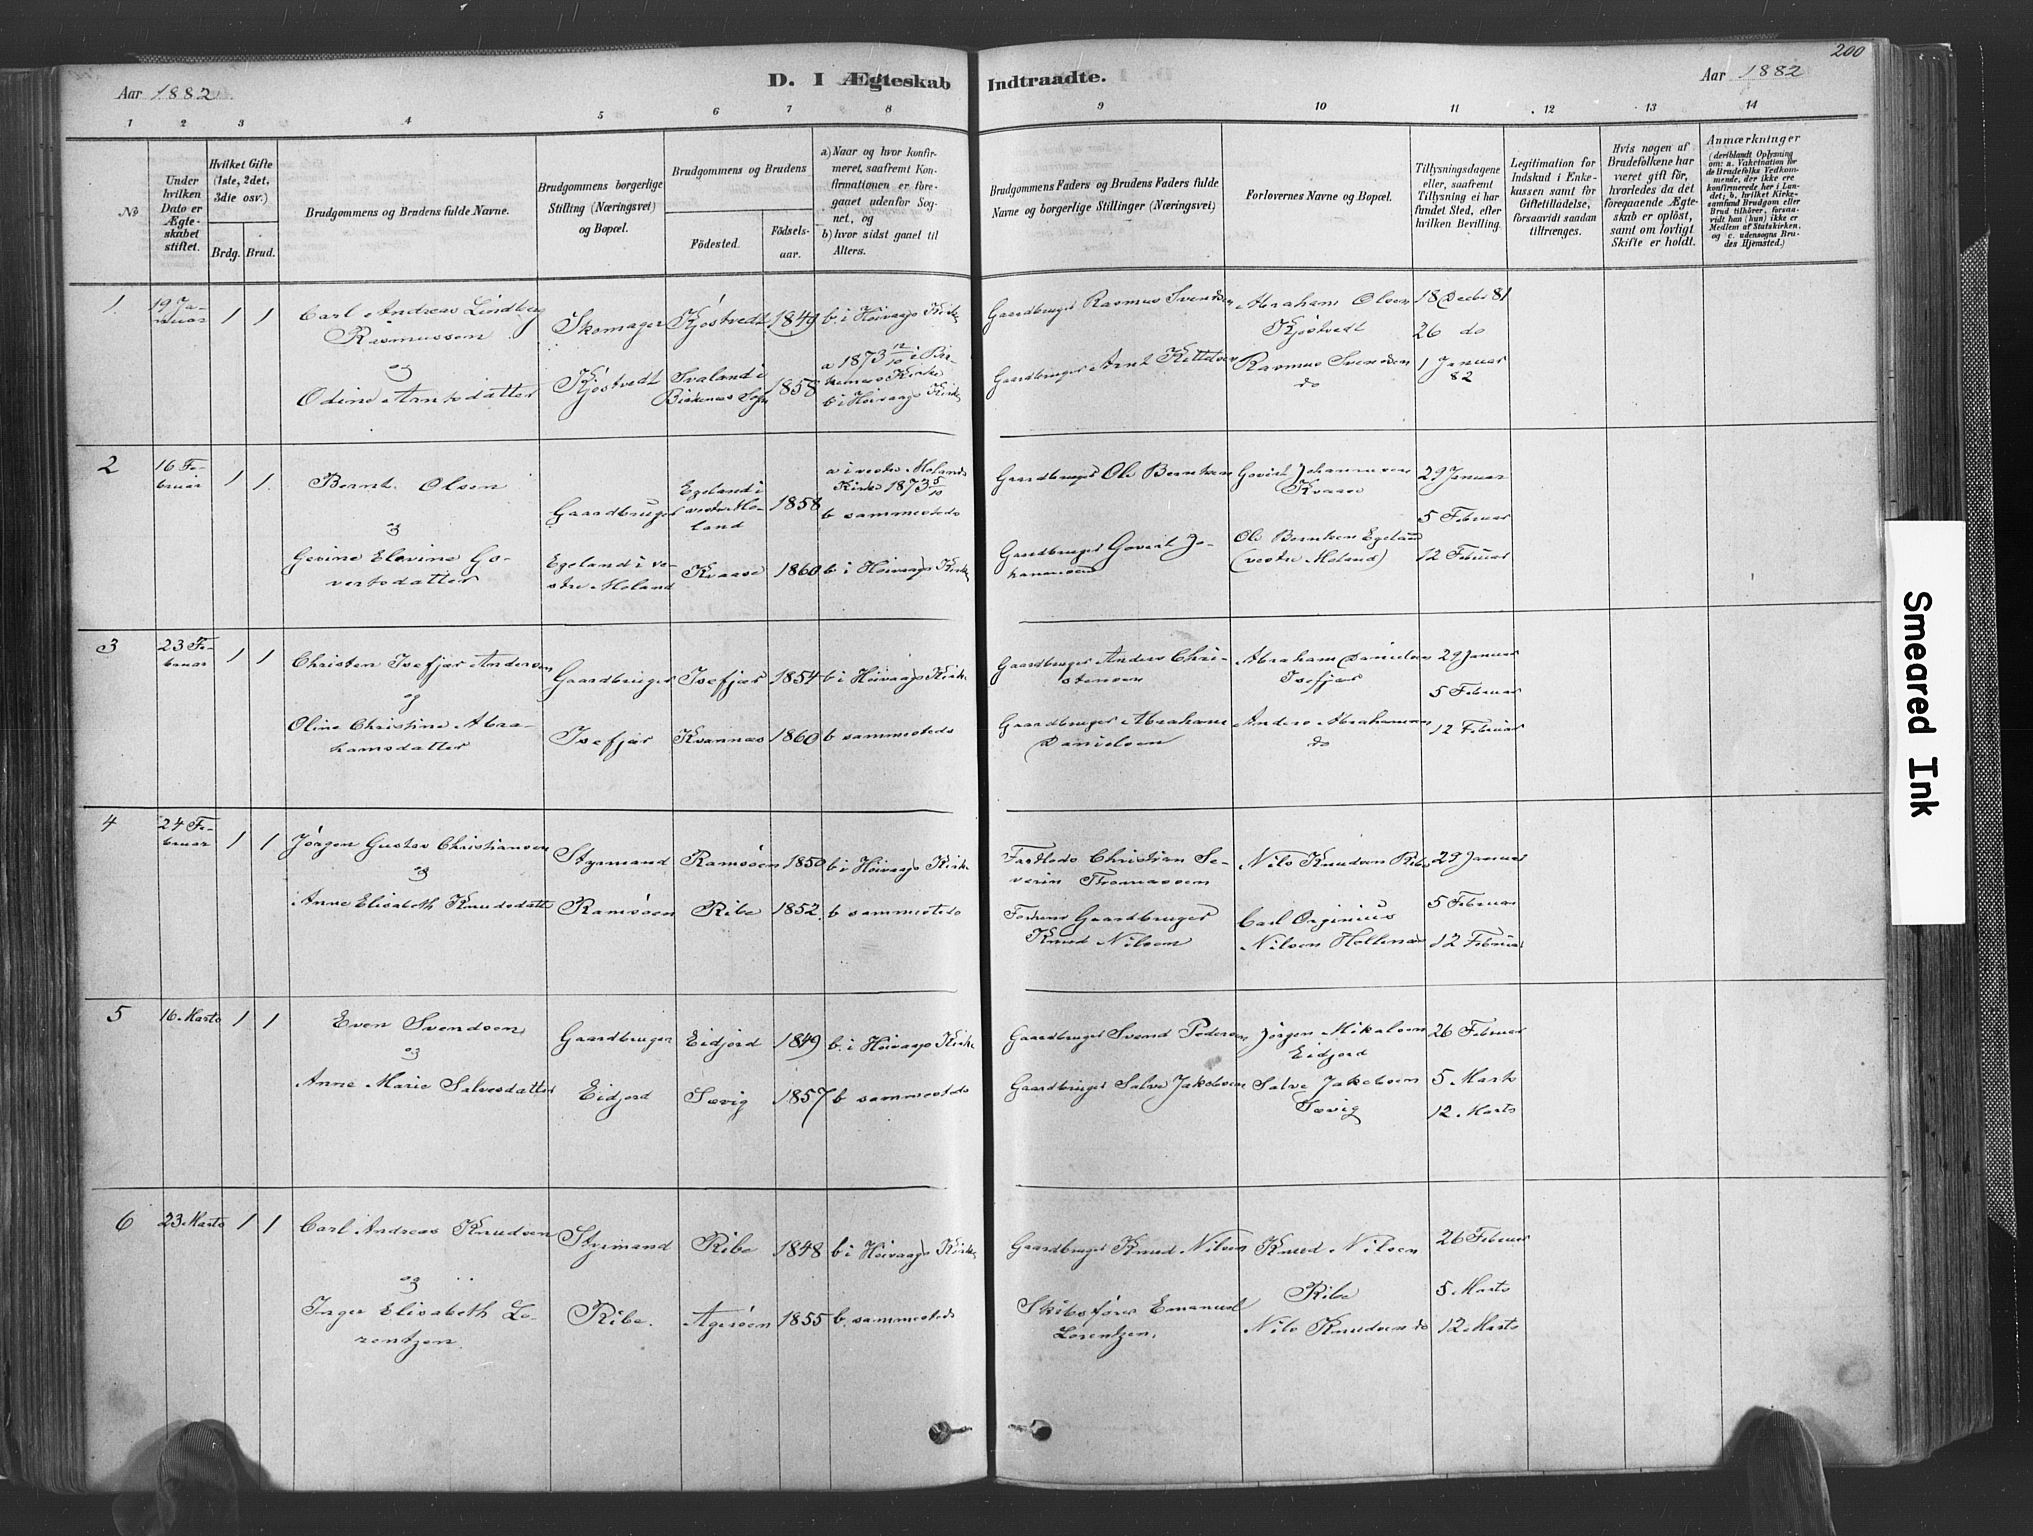 200
D. I Ægteskab Indtraadte.
Aar 1882
Aar 1882
1 2 3 4 5 6 7 8 9 10 11 12 13 14
No
Under
hvilken
Dato er
Ægte-
skabet
stiftet.
Hvilket Gifte
(1ste, 2det,
3die osv.)
Brdg. Brud.
Brudgommens og Brudens fulde Navne.
Brudgommens borgerlige
Stilling (Næringsvei)
og Bopæl.
Brudgommens og Brudens
Födested.
Födsels-
aar.
a) Naar og hvor konfir-
meret, saafremt Kon-
firmationen er fore-
gaaet udenfor Sog-
net, og
b) hvor sidst gaaet til
Alters.
Brudgommens Faders og Brudens Faders fulde
Navne og borgerlige Stillinger (Næringsvei)
Forlovernes Navne og Bopæl.
Tillysningsdagene
eller, saafremt
Tillysning ei har
fundet Sted, efter
hvilken Bevilling.
Legitimation for
Indskud i Enke-
kassen samt for
Giftetilladelse,
forsaavidt saadan
tiltrænges.
Hvis nogen af
Brudefolkene har
været gift för,
hvorledes da det
foregaaende Ægte-
skab er oplöst,
samt om lovligt
Skifte er holdt.
Anmærkninger
(deriblandt Oplysning
om: a. Vakcination for
de Brudefolks Vedkom-
mende, der ikke ere
konfirmerede her i Lan-
det; b. hvilket Kirke-
samfund Brudgom eller
Brud tilhörer, forsaa-
vidt han (hun) ikke er
Medlem af Statskirken.
og c. udensogns Bru-
des Hjemsted.)
1. 19 Ja-
nuar
1 1
Carl Andreas Lindberg
Rasmussen
og
Odine Arntsdatter
Skomager
Kjöstvedt
Kjöstvedt
Svaland i
Birkenes Sogn
1849
1858
b. i Höivaags Kirke
a 1873 12/10 i Bir-
kenes Kirke
b i Höivaags Kirke
Gaardbruger Rasmus Svendsen
Gaardbruger Arnt Kittelsen
Abraham Olsen
Kjöstvedt
Rasmus Svendsen
do
18 Decbr 81
26 do
1 Januar
82
2 16 Fe-
bruar
1 1.
Bernt Olsen
og
Gevine Elevine Go-
vertsdatter
Gaardbruger
Egeland i ve-
stre Moland
Egeland i
vestre Mo-
land
Kvaase
1858
1860
a i vestre Molands
Kirke 1873 5/10
b sammesteds
b i Höivaags Kirke
Gaardbruger Ole Berntsen
Gaardbruger Govert Jo-
hannesen
Govert Johannesen
Kvaase
Ole Berntsen Egeland
(vestre Moland)
29 Januar
5 Februar
12 Februar
3 23 Fe-
bruar
1 1
Christen Isefjær Andersen
og
Oline Christine Abra-
hamsdatter
Gaardbruger
Isefjær
Isefjær
Kvannes
1854
1860
b i Höivaags Kirke
b sammesteds
Gaardbruger Anders Chri-
stensen
Gaardbruger Abraham
Danielsen
Abraham Danielsen
Isefjær
Anders Abrahamsen
do
29 Januar
5 Februar
12 Februar
4 24 Fe-
bruar
1 1
Jörgen Gustav Christiansen
og
Anne Elisabeth Knudsdatter
Styrmand
Ramsöen
Ramsöen
Ribe
1850
1852.
b i Höivaags Kirke
b sammesteds
Christian Se-
verin Thomassen
Gaardbruger
Knud Nilsen
Nils Knudsen Ribe
Carl
Nilsen
29 Januar
5 Februar
12 Februar
5 16 Marts
1 1
Even Svendsen
og
Anne Marie Salvesdatter
Gaardbruger
Eidjord
Eidjord
Sævig
1849
1857
b. i Höivaags Kirke
b sammesteds
Gaardbruger Svend Pedersen
Gaardbruger Salve Jakobsen
Jörgen Mikalsen
Eidjord
Salve Jakobsen
Sævig
26 Februar
5 Marts
12 Marts
6 23 Marts
1 1
Carl Andreas Knudsen
og
Inger Elisabeth Lo-
rentzen.
Styrmand
Ribe.
Ribe
Ageröen
1848
1855
b i Höivaags Kirke
b. sammesteds
Gaardbruger Knud Nilsen
Skibsförer Emanuel
Lorentzen.
Knud Nilsen
Ribe
Nils Knudsen do
26 Februar
5 Marts
12 Marts
Smeared Ink